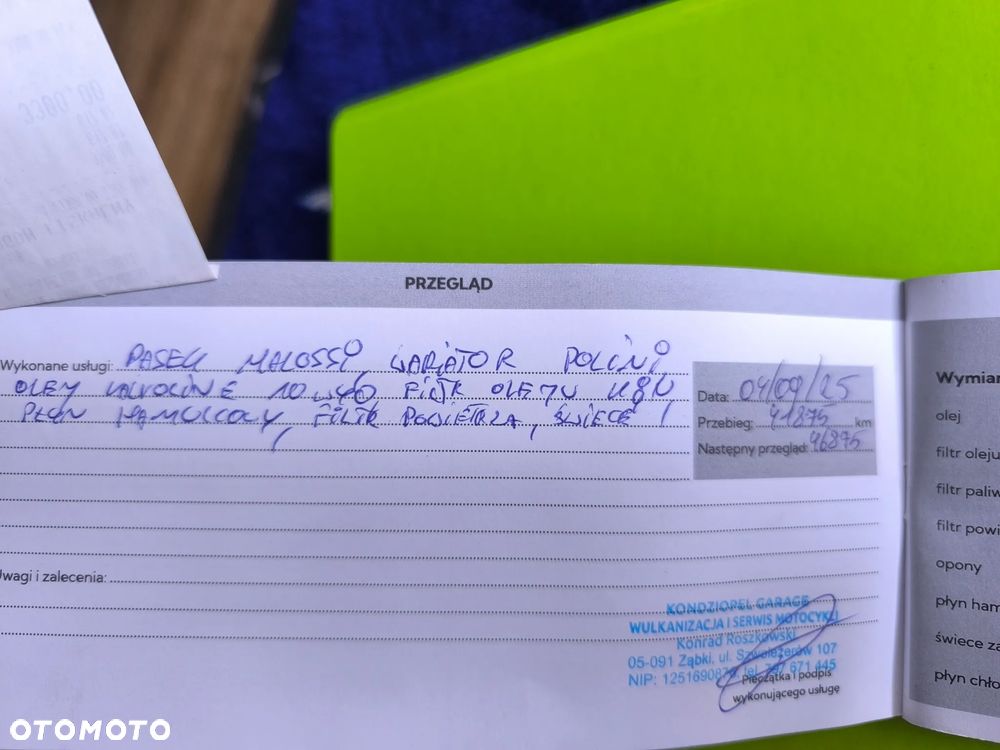 PRZEGLĄD
Wykonane usługi: PASEK MALOSSI, WARIATOR POLINI,
OLEJ VALVOLINE 10W40, FILTR OLEJU K&N,
PŁYN HAMULCOWY, FILTR POWIETRZA, ŚWIECE
Data: 04/09/25
Przebieg: 41875 km
Następny przegląd: 46875
Uwagi i zalecenia:
KONDZIOPEL GARAGE
WULKANIZACJA I SERWIS MOTOCYKLI
Konrad Roszkowski
05-091 Ząbki, ul. Szwoleżerów 107
NIP: tel. 671 445
Pieczątka i podpis
wykonującego usługę
Wymian
olej
filtr oleju
filtr paliw
filtr powi
opony
płyn ham
świece za
płyn chło
OTOMOTO